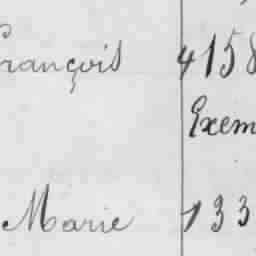 François 4158
Exem
Marie 133